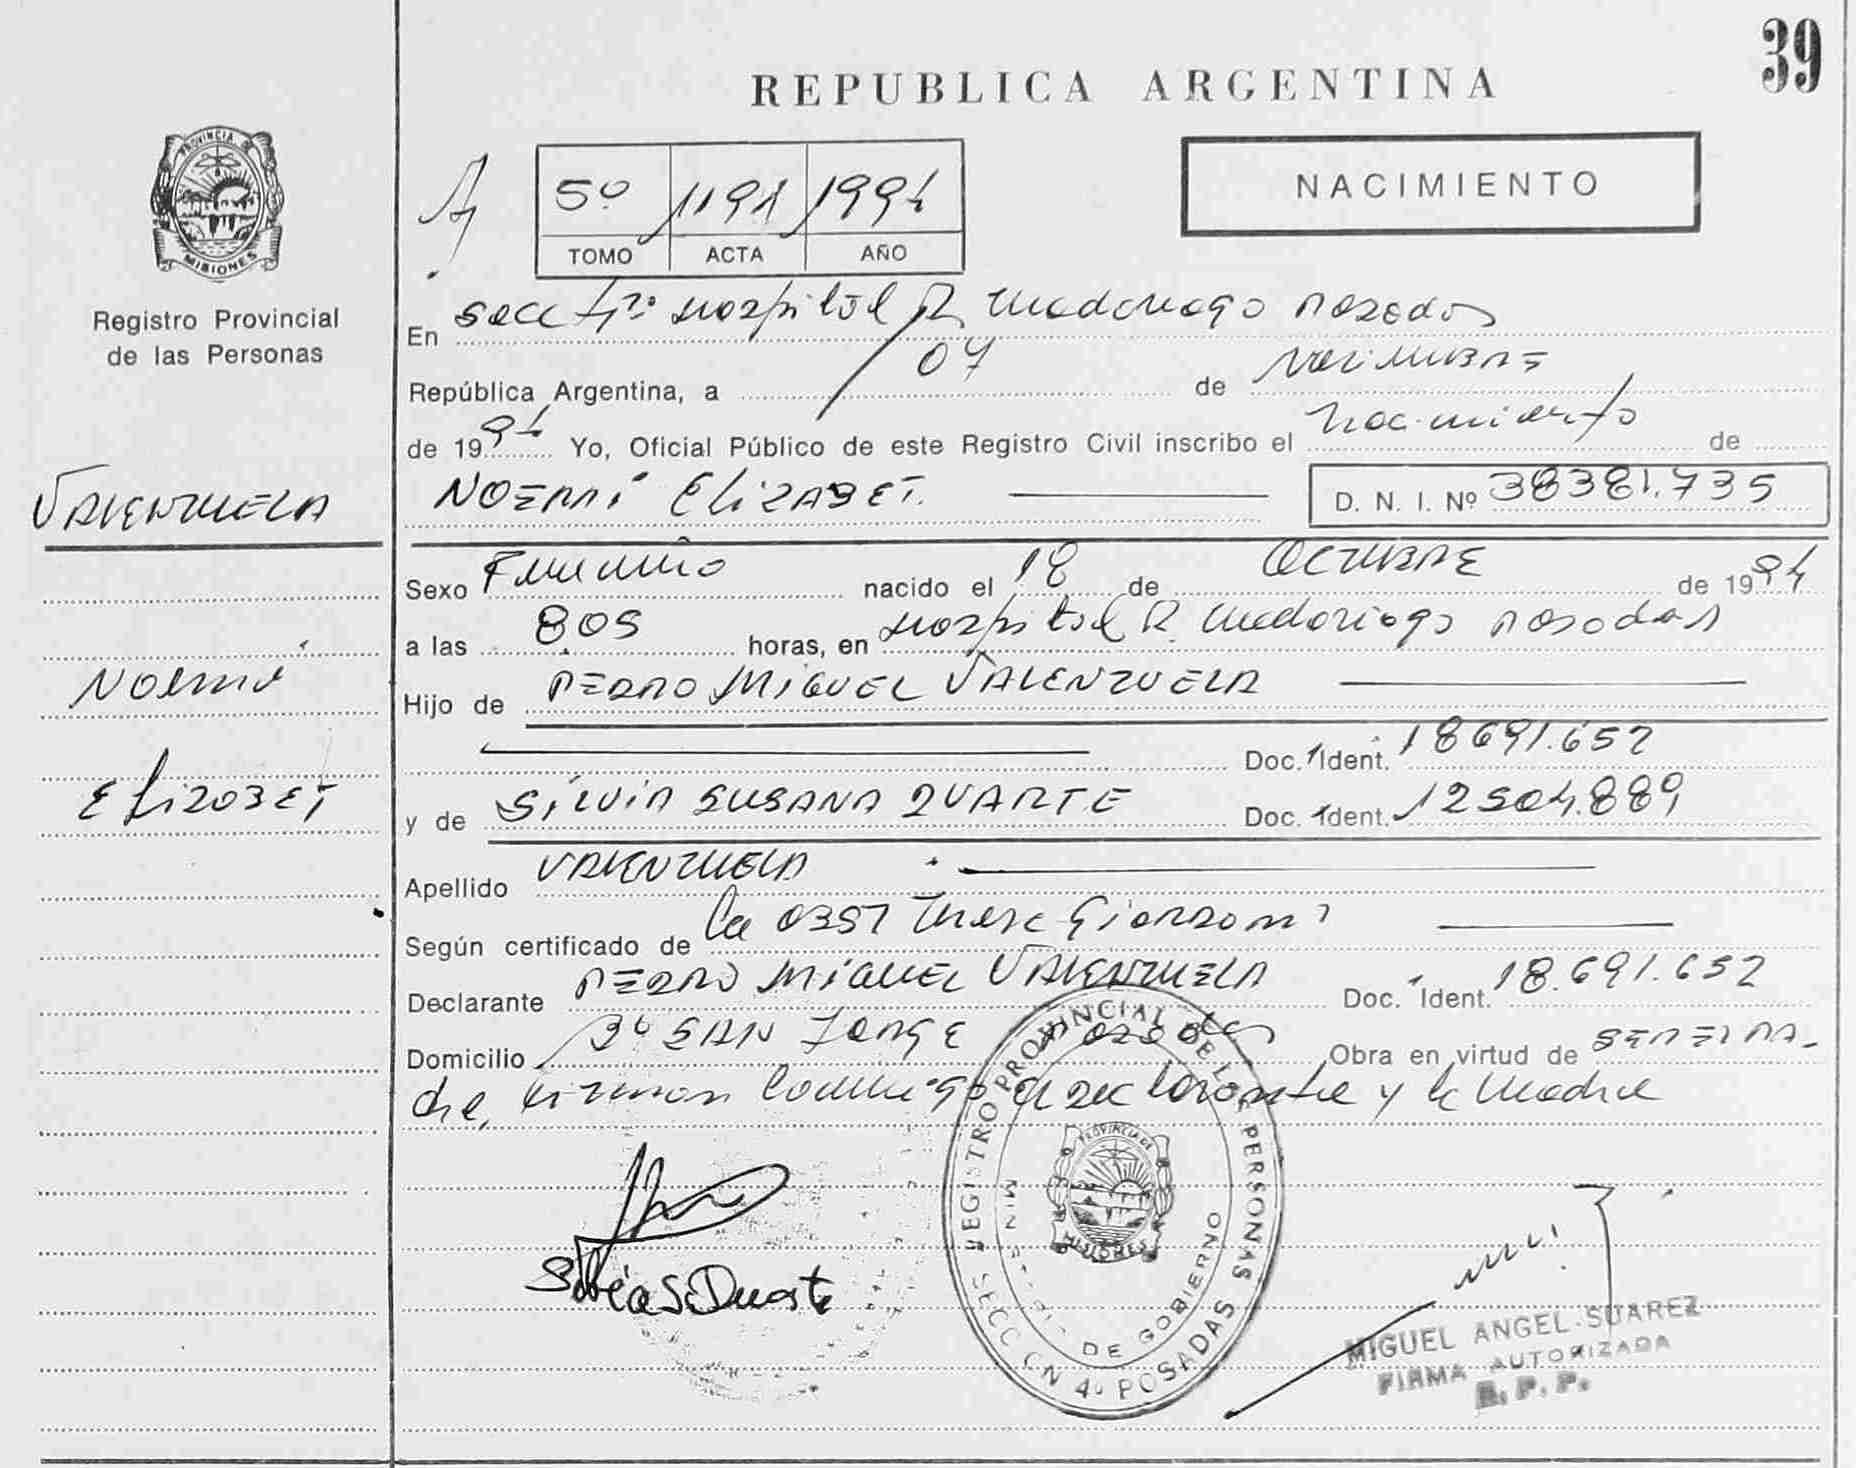 39
REPUBLICA ARGENTINA
PROVINCIA DE
MISIONES
Registro Provincial
de las Personas
5º 1191 1994
TOMO ACTA AÑO
NACIMIENTO
En Secc 4ta Hospital R. Madariaga Posadas
República Argentina, a 07 de NOVIEMBRE
de 1994 Yo, Oficial Público de este Registro Civil inscribo el nacimiento de
VALENZUELA
NOEMÍ ELIZABET. D. N. I. Nº 38381.735
Sexo Femenino nacido el 18 de OCTUBRE de 1994
a las 805 horas, en Hospital R. Madariaga Posadas
Noemí
Hijo de PEDRO MIGUEL VALENZUELA
Doc. Ident. 18691.652
ELIZABET
y de SILVIA SUSANA DUARTE Doc. Ident. 12504.889
Apellido VALENZUELA
Según certificado de la OBST
Declarante PEDRO MIGUEL VALENZUELA Doc. Ident. 18.691.652
Domicilio Bº SAN JORGE Posadas Obra en virtud de SER EL PA-
dre, firman conmigo el declarante y la Madre
Silvia S. Duarte
REGISTRO PROVINCIAL DE LAS PERSONAS
SECCION 4º POSADAS
MINISTERIO DE GOBIERNO
PROVINCIA DE
MISIONES
MIGUEL ANGEL SUAREZ
FIRMA AUTORIZADA
R. P. P.